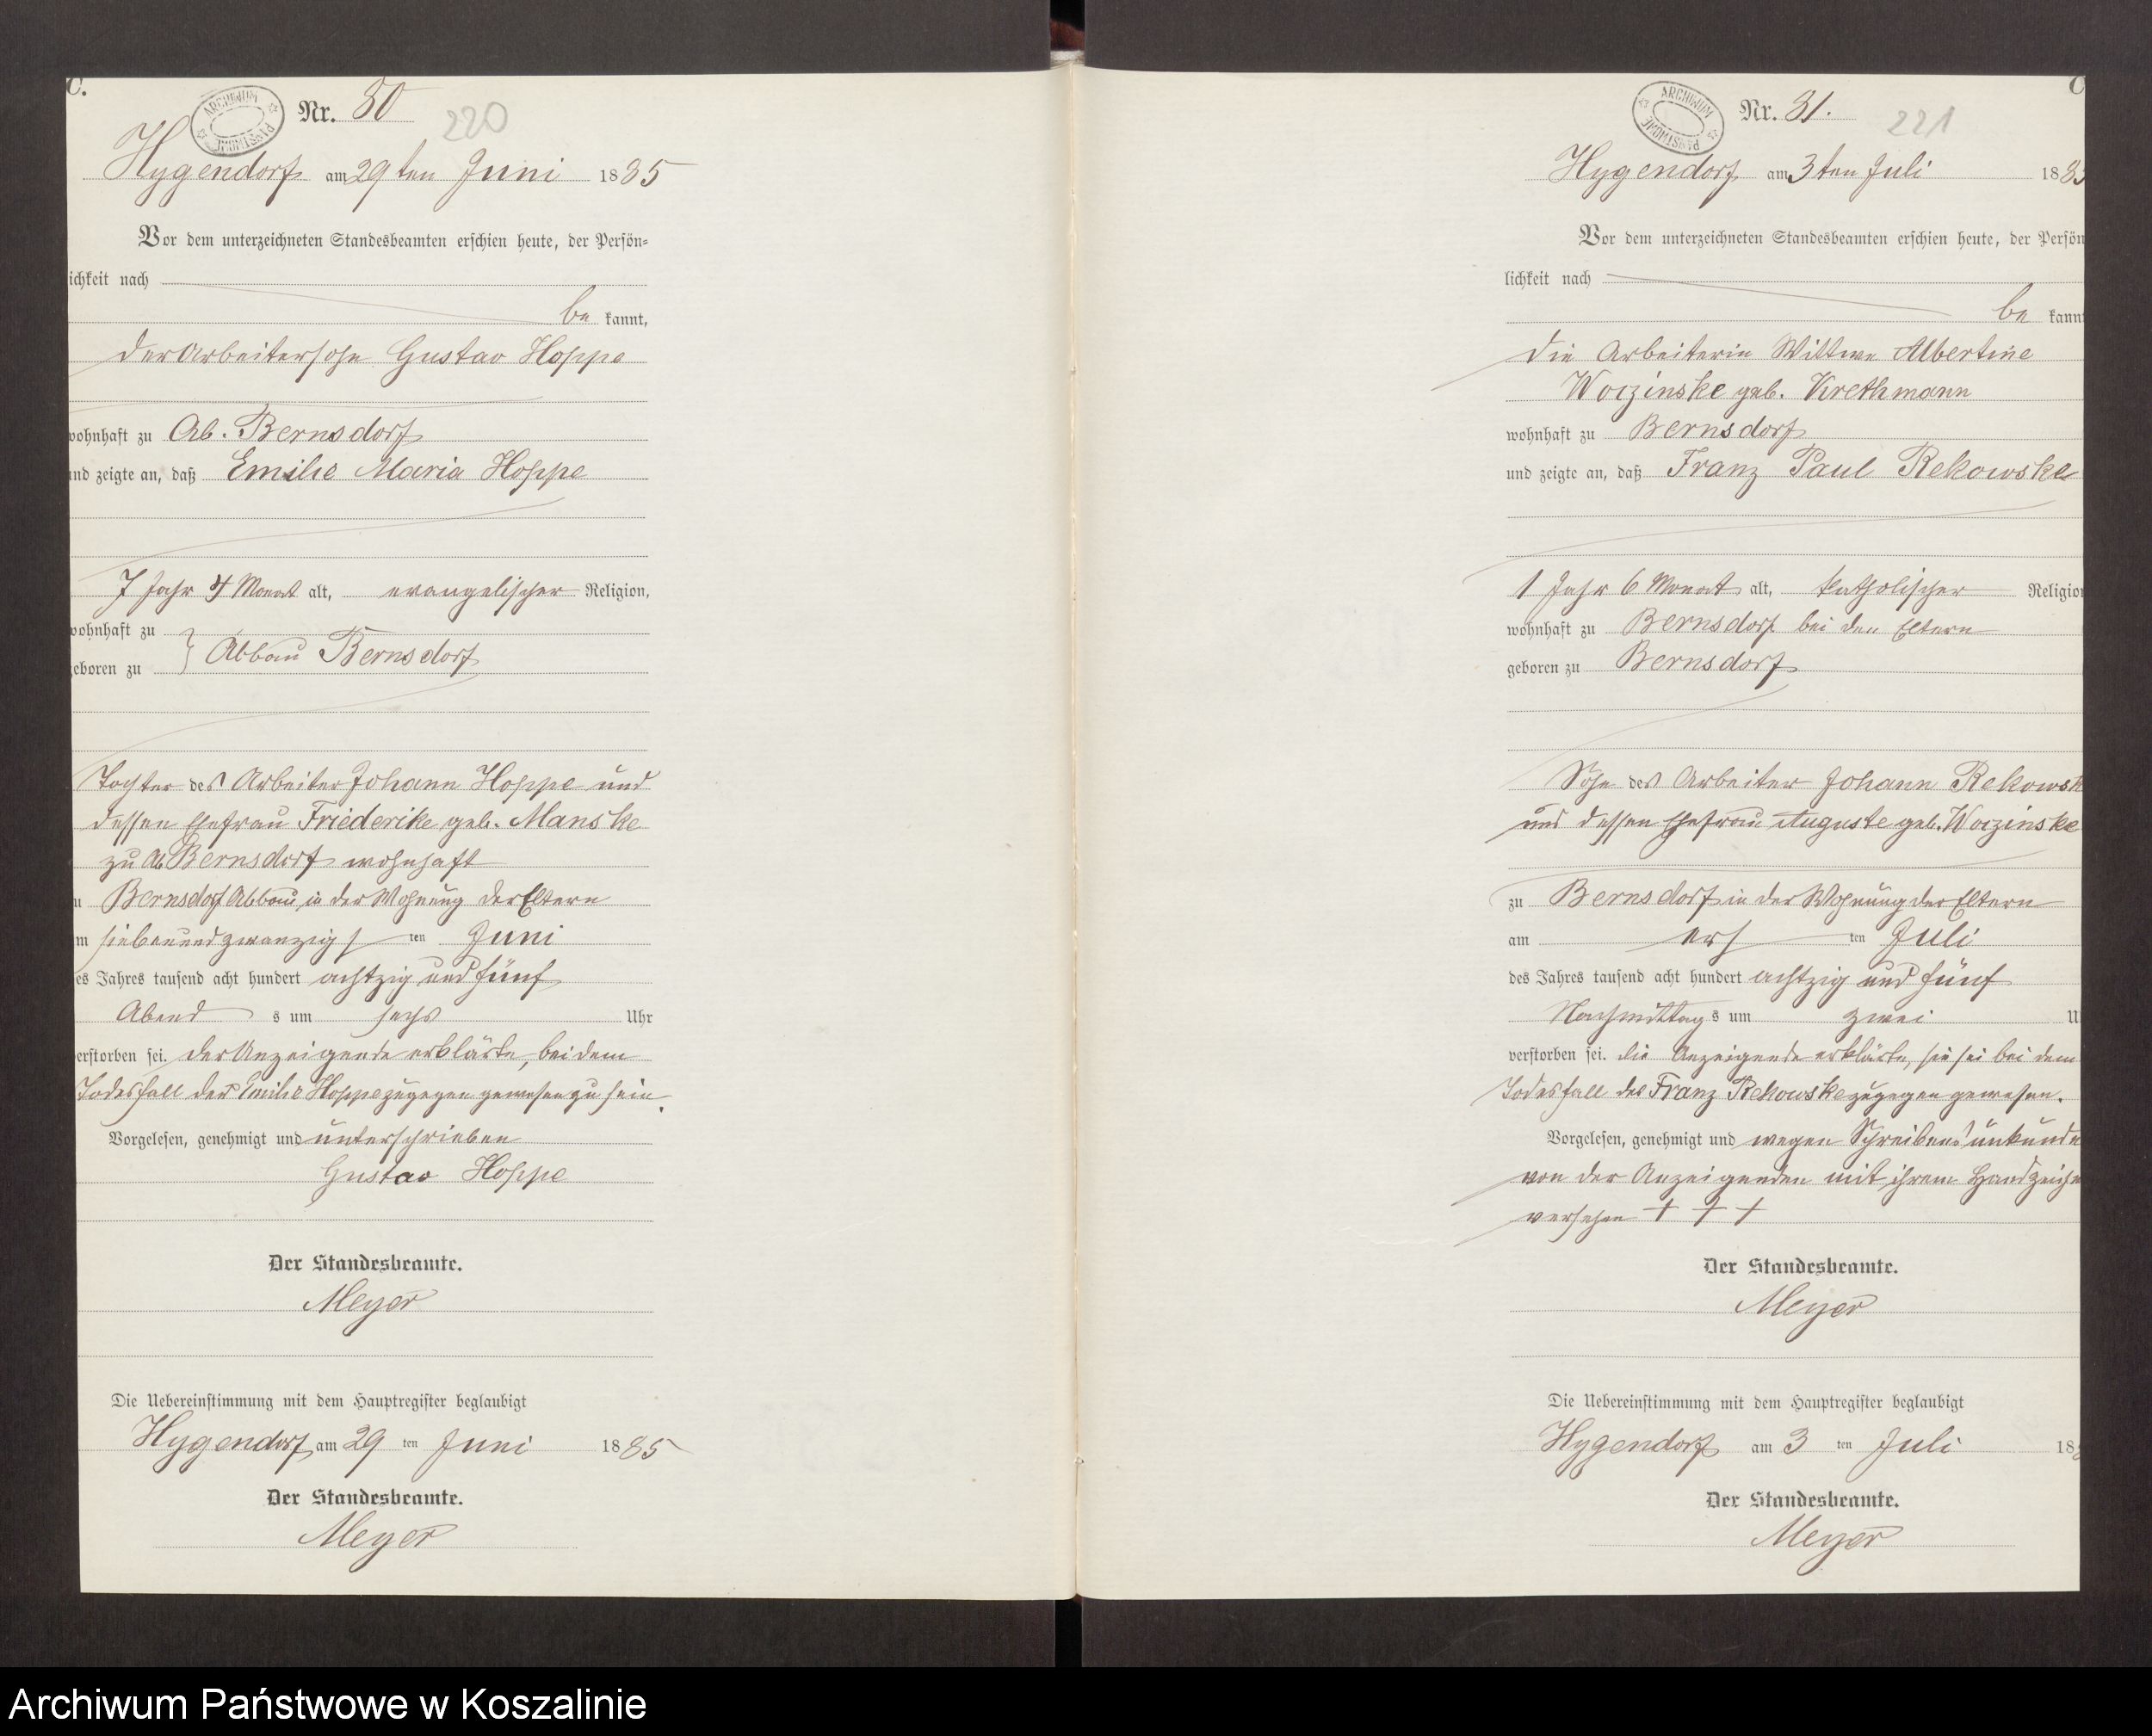 C.
ARCHIWUM PAŃSTWOWE
Nr. 30
220
Hygendorf am 29ten Juni 1885
Vor dem unterzeichneten Standesbeamten erschien heute, der Persön-
lichkeit nach
be kannt,
der Arbeitersohn Gustav Hoppe
wohnhaft zu Ab. Bernsdorf
und zeigte an, daß Emilie Maria Hoppe
7 Jahr 4 Monat alt, evangelischer Religion,
wohnhaft zu
geboren zu } Abbau Bernsdorf
Tochter des Arbeiter Johann Hoppe und
dessen Ehefrau Friederike geb. Manske
zu Ab Bernsdorf wohnhaft
zu Bernsdorf Abbau in der Wohnung der Eltern
am siebenundzwanzigsten Juni
des Jahres tausend acht hundert achtzig und fünf
Abend s um sechs Uhr
verstorben sei. der Anzeigende erklärte, bei dem
Todesfall der Emilie Hoppe zugegen gewesen zu sein.
Vorgelesen, genehmigt und unterschrieben
Gustav Hoppe
Der Standesbeamte.
Meyer
Die Uebereinstimmung mit dem Hauptregister beglaubigt
Hygendorf, am 29 ten Juni 1885
Der Standesbeamte.
Meyer
C
ARCHIWUM PAŃSTWOWE
Nr. 31.
221
Hygendorf am 3ten Juli 1885
Vor dem unterzeichneten Standesbeamten erschien heute, der Persön
lichkeit nach
be kannt
die Arbeiterin Wittwe Albertine
Woczinske geb. Krethmann
wohnhaft zu Bernsdorf
und zeigte an, daß Franz Paul Rekowske
1 Jahr 6 Monat alt, katholischer Religion
wohnhaft zu Bernsdorf bei den Eltern
geboren zu Bernsdorf
Sohn des Arbeiter Johann Rekowsk
und dessen Ehefrau Auguste geb. Woczinske
zu Bernsdorf in der Wohnung der Eltern
am ers ten Juli
des Jahres tausend acht hundert achtzig und fünf
Nachmittag s um zwei U
verstorben sei. die Anzeigende erklärte, sie sei bei dem
Todesfall des Franz Rekowske zugegen gewesen.
Vorgelesen, genehmigt und wegen Schreibens unkunde
von der Anzeigenden mit ihrem Handzeichen
versehen + + +
Der Standesbeamte.
Meyer
Die Uebereinstimmung mit dem Hauptregister beglaubigt
Hygendorf am 3 ten Juli 188
Der Standesbeamte.
Meyer
Archiwum Państwowe w Koszalinie